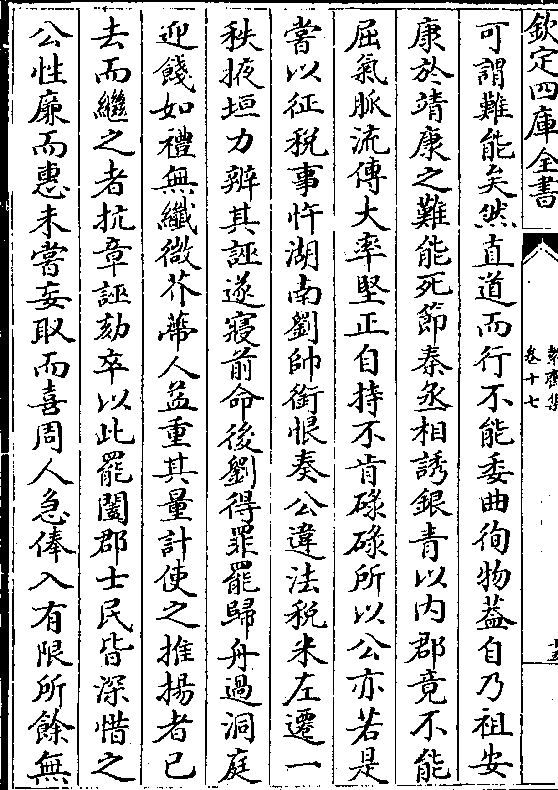 欽定四庫全書
卷十七
可謂難能矣然直道而行不能委曲徇物葢自乃祖安
康於靖康之難能死節秦丞相誘銀青以内郡竟不能
屈氣脈流傳大率堅正自持不肯碌碌所以公亦若是
嘗以征税事忤湖南劉帥銜恨奏公違法税米左遷一
秩掖垣力辨其誣遂寢前命後劉得罪罷歸舟過洞庭
迎餞如禮無纎微芥蔕人益重其量計使之推揚者已
去而繼之者抗章誣劾卒以此罷闔郡士民皆深惜之
公性廉而惠未嘗妄取而喜周人急俸入有限所餘無